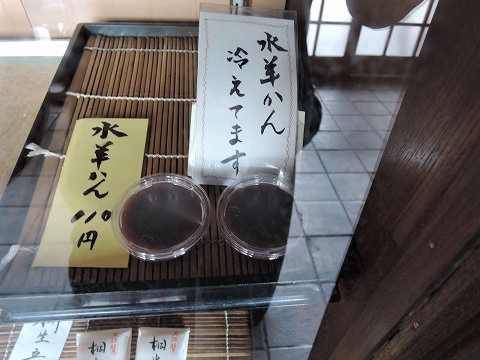 水羊かん
冷えてます
水羊かん
110円
桐生
桐
桐